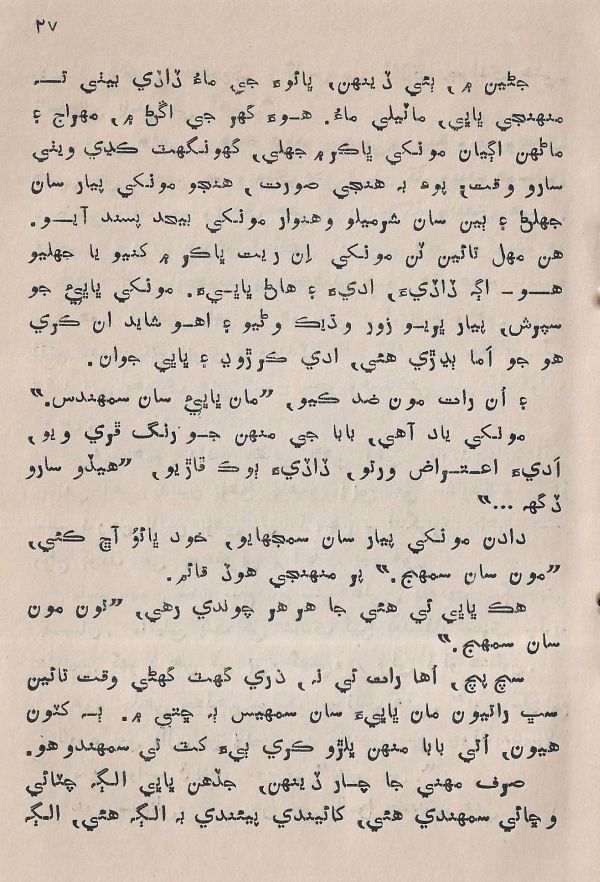 ٢٧
جڻين ۾، ٻئي ڏينهن، ڀائوءَ جي ماءُ ڏاڏي ٻيٺي ته
منهنجي ڀاڀي، ماٽيلي ماءُ. هوءَ گهر جي اڱڻ ۾، مهراج ۽
ماڻهن اڳيان مونکي ڀاڪر ۾ جهلي، گهونگهٽ ڪڍي ويٺي
سارو وقت؛ پوءِ به هنجي صورت، هنجو مونکي پيار سان
جهلڻ ۽ ٻين سان شرميلو وهنوار مونکي بيحد پسند آيو.
هن مهل تائين ٽن مونکي اِن ريت ڀاڪر ۾ کنيو يا جهليو
هو - اڳ ڏاڏيءَ، اديءَ ۽ هاڻ ڀاڀيءَ. مونکي ڀاڀيءَ جو
سپرش، پيار ڀريو زور وڌيڪ وڻيو ۽ اهو شايد ان ڪري
هو جو اَما ٻڍڙي هئي، ادي ڪرڙوڍ ۽ ڀاڀي جوان.
۽ اُن رات مون ضد ڪيو، ”مان ڀاڀيءَ سان سمهندس.“
مونکي ياد آهي، بابا جي منهن جو رنگ ڦري ويو،
اَديءَ اعتراض ورتو، ڏاڏيءَ ٻوڪ ڦاڙيو، ”هيڏو سارو
ڍڳهه ...“
دادن مونکي پيار سان سمجهايو، خود ڀائوُ آڇ ڪئي،
”مون سان سمهج.“ پر منهنجي هوڏ قائم.
هڪ ڀاڀي ئي هئي جا هر هر چوندي رهي، ”تون مون
سان سمهج.“
سچ پچ، اُها رات ئي نه، ذري گهٽ گهڻي وقت تائين
سڀ راتيون مان ڀاڀيءَ سان سمهيس به ڇتي ۾. ٻه کٽون
هيون، اُتي بابا منهن ڀلڙو ڪري ٻيءَ کٽ تي سمهندو هو.
صرف مهني جا چار ڏينهن، جڏهن ڀاڀي الڳ چٽائي
وڇائي سمهندي هئي، کائيندي پيئندي به الڳ هئي، الڳ